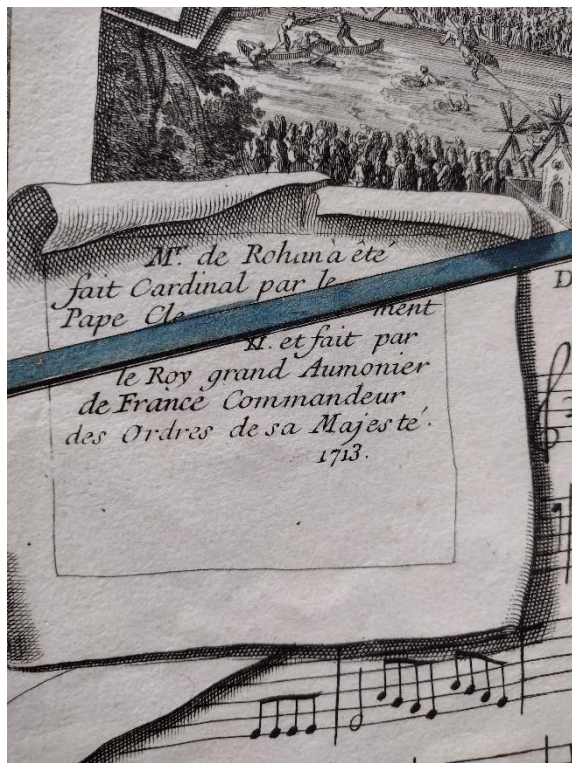 Mr. de Rohan à été
fait Cardinal par le
Pape Cle ment
XI. et fait par
le Roy grand Aumonier
de France Commandeur
des Ordres de sa Majesté.
1713.
D